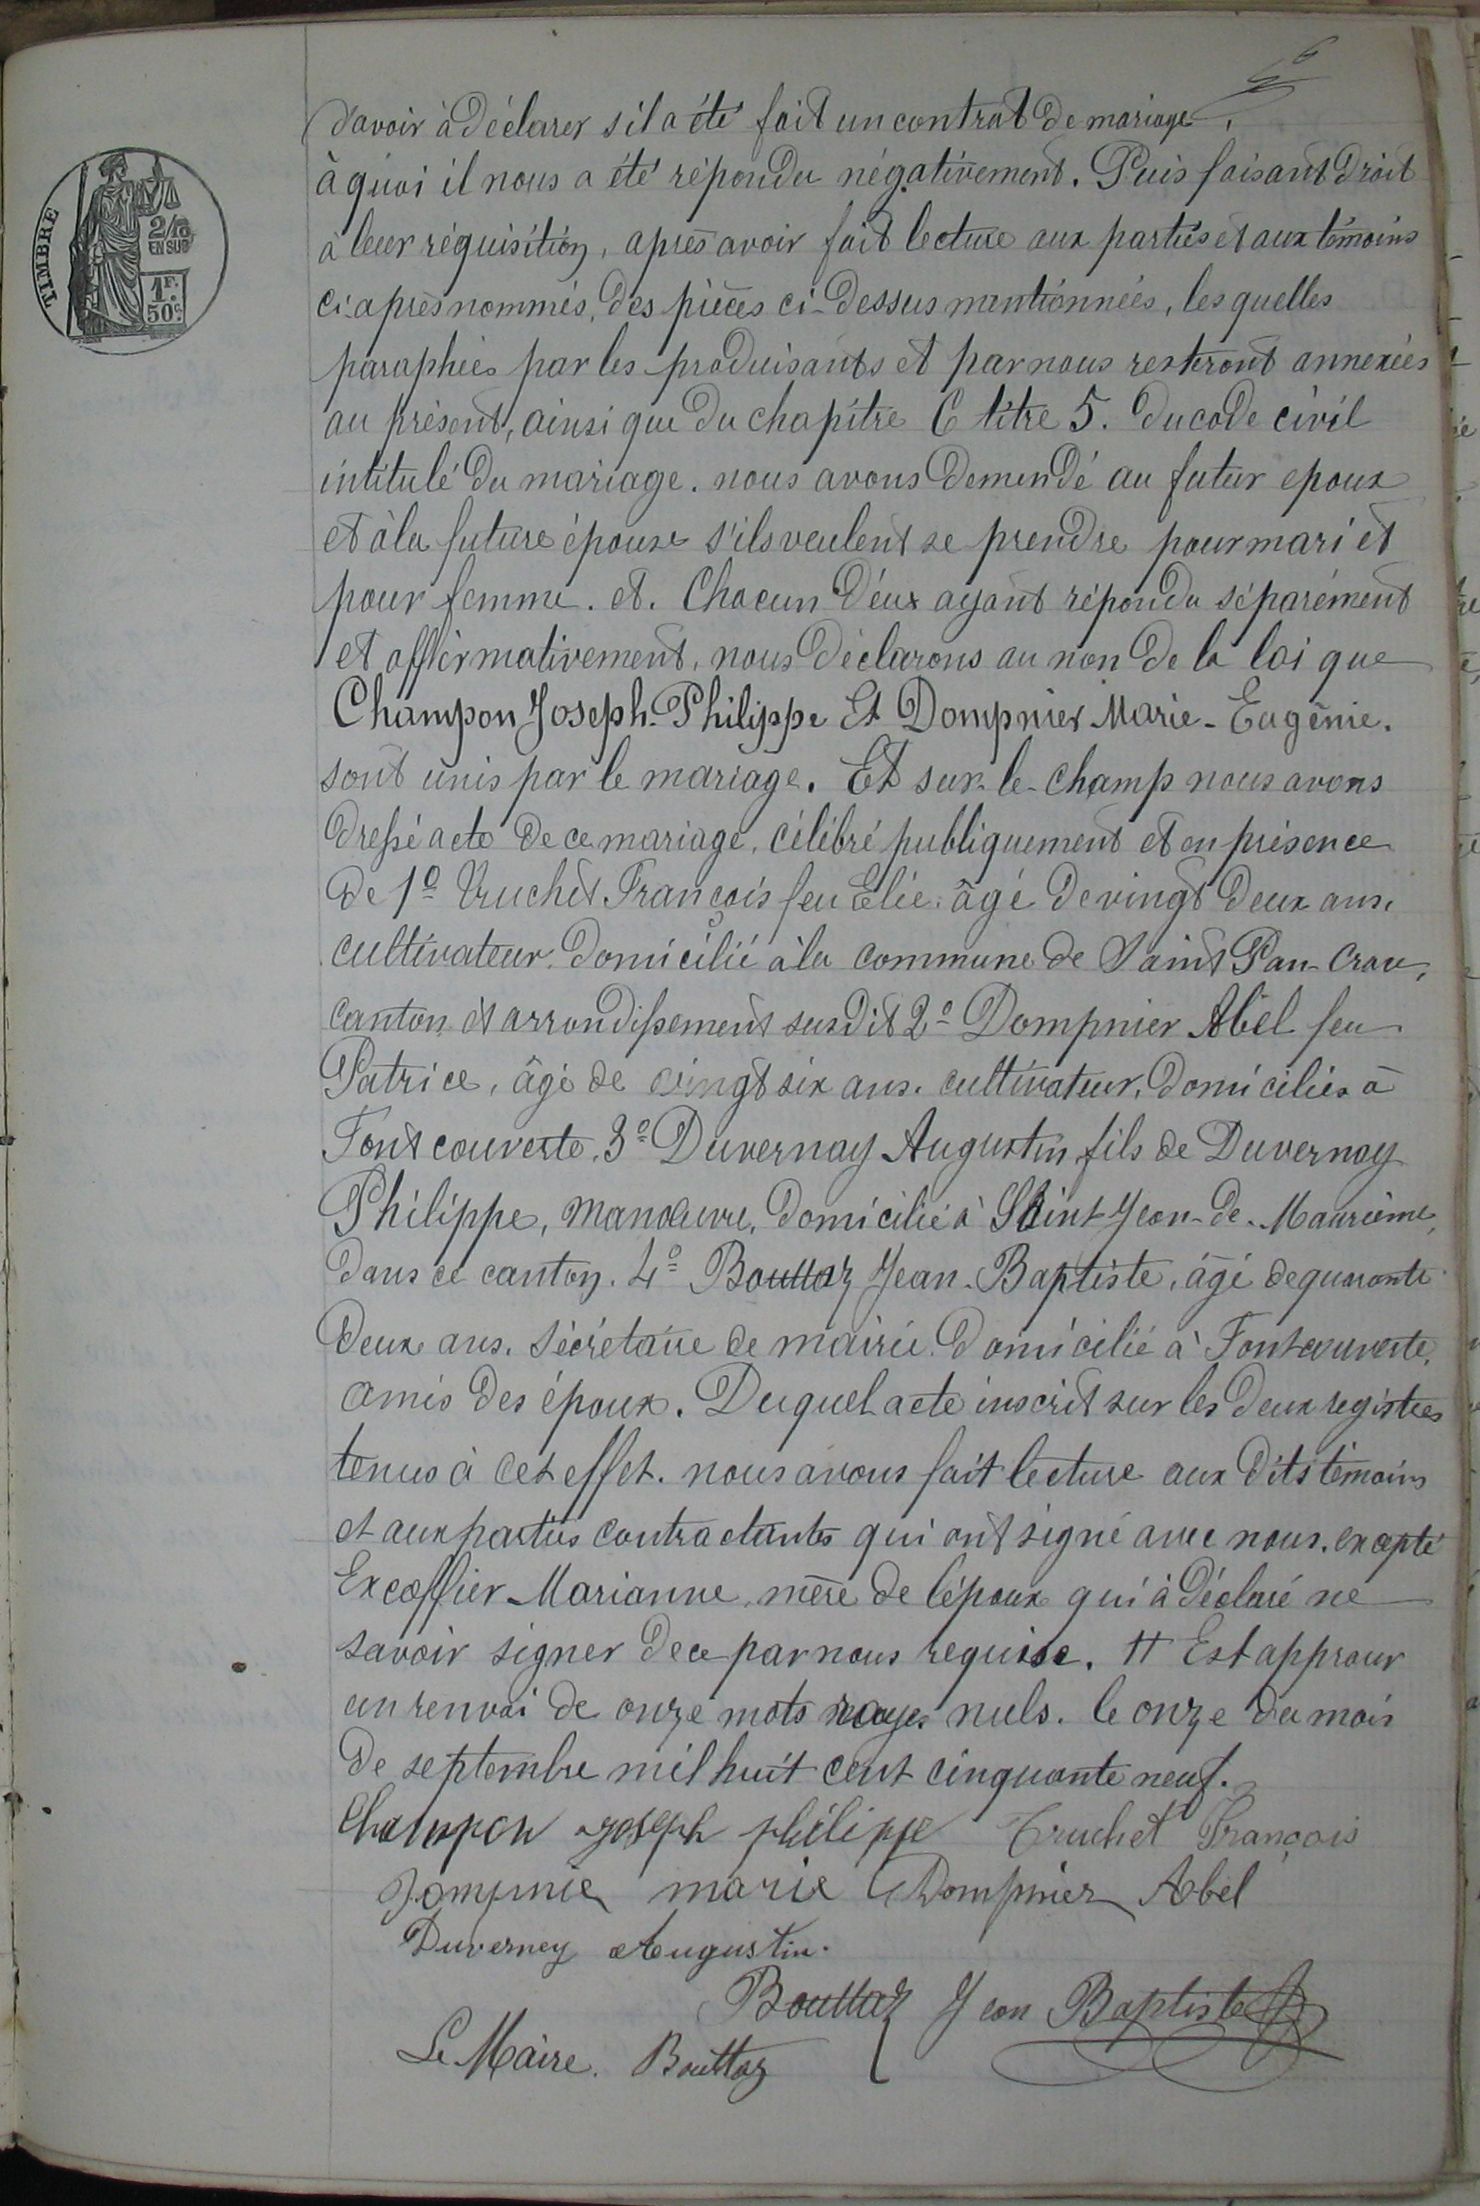 TIMBRE
2/10
EN SUS
1F.
50c.
d'avoir à déclarer s'il a été fait un contrat de mariage,
à quoi il nous a été répondu négativement. Puis faisant droit
à leur réquisition, après avoir fait lecture aux parties et aux témoins
ci-après nommés, des pièces ci-dessus mentionnées, les quelles
paraphées par les produisants et par nous resteront annexées
au présent, ainsi que du chapitre 6 titre 5. du code civil
intitulé du mariage. nous avons demendé au futur epoux
et à la future épouse s'ils veulent se prendre pour mari et
pour femme. et. Chacun d'eux ayant répondu séparément
et affirmativement, nous déclarons au non de la loi que
Champon Joseph-Philippe Et Dompnier Marie-Eugénie.
sont unis par le mariage. Et sur-le-champ nous avons
dressé acte de ce mariage, célébré publiquement et en présence
de 1o Truchet François feu Elie, âgé de vingt deux ans,
cultivateur domicilié à la commune de Saint Pan-crace,
canton et arrondissement susdit 2o Dompnier Abel feu
Patrice, âgé de vingt six ans. cultivateur, domiciliés à
Fontcouverte, 3o Duvernay Augustin fils de Duvernay
Philippe, manœuvre, domicilié à Saint-Jean-de-Maurienne,
dans ce canton. 4o Bouttaz Jean-Baptiste, âgé de quarante
deux ans. sécrétaire de mairie. domicilié à Fontcouverte,
amis des époux. Duquel acte inscrit sur les deux registres
tenus à cet effet. nous avons fait lecture aux dits témoins
et aux parties contractantes qui ont signé avec nous. excepté
Excoffier Marianne, mère de l'époux qui à déclaré ne
savoir signer de ce par nous requise. # Est approuv
un renvoi de onze mots rayés nuls. le onze du mois
de septembre mil huit cent cinquante neuf.
Champon joseph philippe Truchet François
Dompnier marie Dompnier Abel
Duverney Augustin.
Bouttaz Jean Baptiste
Le Maire. Bouttaz